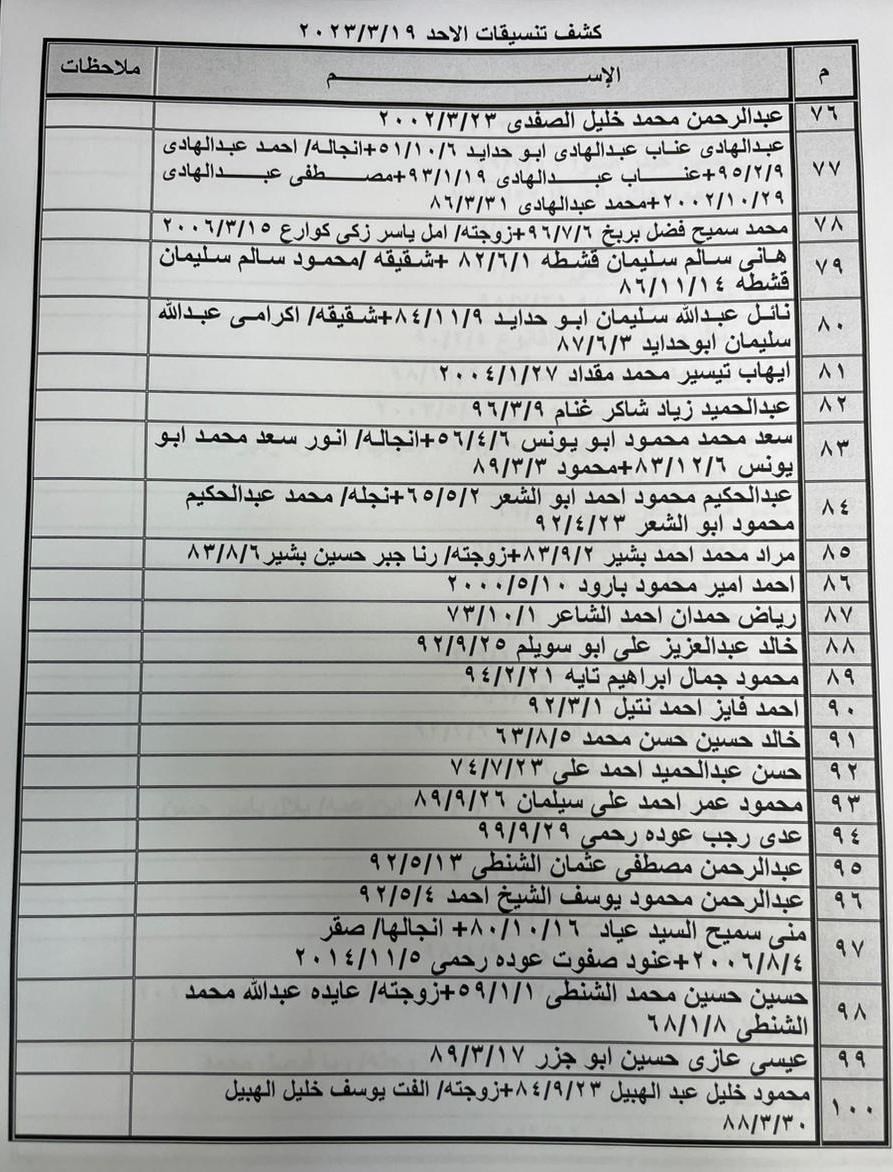 كشف تنسيقات الاحد ٢٠٢٣/٣/١٩
م الإســـــــــم ملاحظات
٧٦ عبدالرحمن محمد خليل الصفدى ٢٠٠٢/٣/٢٣
٧٧ عبدالهادى عناب عبدالهادى ابو حدايد ٥١/١٠/٦+انجاله/ احمد عبدالهادى
٩٥/٢/٩+عناب عبدالهادى ٩٣/١/١٩+مصطفى عبدالهادى
٢٠٠٢/١٠/٢٩+محمد عبدالهادى ٨٦/٣/٣١
٧٨ محمد سميح فضل بربخ ٩٦/٧/٦+زوجته/ امل ياسر زكى كوارع ٢٠٠٦/٣/١٥
٧٩ هانى سالم سليمان قشطه ٨٢/٦/١ +شقيقه /محمود سالم سليمان
قشطه ٨٦/١١/١٤
٨٠ نائل عبدالله سليمان ابو حدايد ٨٤/١١/٩+شقيقه/ اكرامى عبدالله
سليمان ابوحدايد ٨٧/٦/٣
٨١ ايهاب تيسير محمد مقداد ٢٠٠٤/١/٢٧
٨٢ عبدالحميد زياد شاكر غنام ٩٦/٣/٩
٨٣ سعد محمد محمود ابو يونس ٥٦/٤/٦+انجاله/ انور سعد محمد ابو
يونس ٨٣/١٢/٦+محمود ٨٩/٣/٣
٨٤ عبدالحكيم محمود احمد ابو الشعر ٦٥/٥/٢+نجله/ محمد عبدالحكيم
محمود ابو الشعر ٩٢/٤/٢٣
٨٥ مراد محمد احمد بشير ٨٣/٩/٢+زوجته/ رنا جبر حسين بشير ٨٣/٨/٦
٨٦ احمد امير محمود بارود ٢٠٠٠/٥/١٠
٨٧ رياض حمدان احمد الشاعر ٧٣/١٠/١
٨٨ خالد عبدالعزيز على ابو سويلم ٩٢/٩/٢٥
٨٩ محمود جمال ابراهيم تايه ٩٤/٢/٢١
٩٠ احمد فايز احمد نتيل ٩٢/٣/١
٩١ خالد حسين حسن محمد ٦٣/٨/٥
٩٢ حسن عبدالحميد احمد على ٧٤/٧/٢٣
٩٣ محمود عمر احمد على سيلمان ٨٩/٩/٢٦
٩٤ عدى رجب عوده رحمى ٩٩/٩/٢٩
٩٥ عبدالرحمن مصطفى عثمان الشنطى ٩٢/٥/١٣
٩٦ عبدالرحمن محمود يوسف الشيخ احمد ٩٢/٥/٤
٩٧ منى سميح السيد عياد ٨٠/١٠/١٦+ انجالها/ صقر
٢٠٠٦/٨/٤+عنود صفوت عوده رحمى ٢٠١٤/١١/٥
٩٨ حسين حسين محمد الشنطى ٥٩/١/١+زوجته/ عايده عبدالله محمد
الشنطى ٦٨/١/٨
٩٩ عيسى عازى حسين ابو جزر ٨٩/٣/١٧
١٠٠ محمود خليل عبد الهبيل ٨٤/٩/٢٣+زوجته/ الفت يوسف خليل الهبيل
٨٨/٣/٣٠